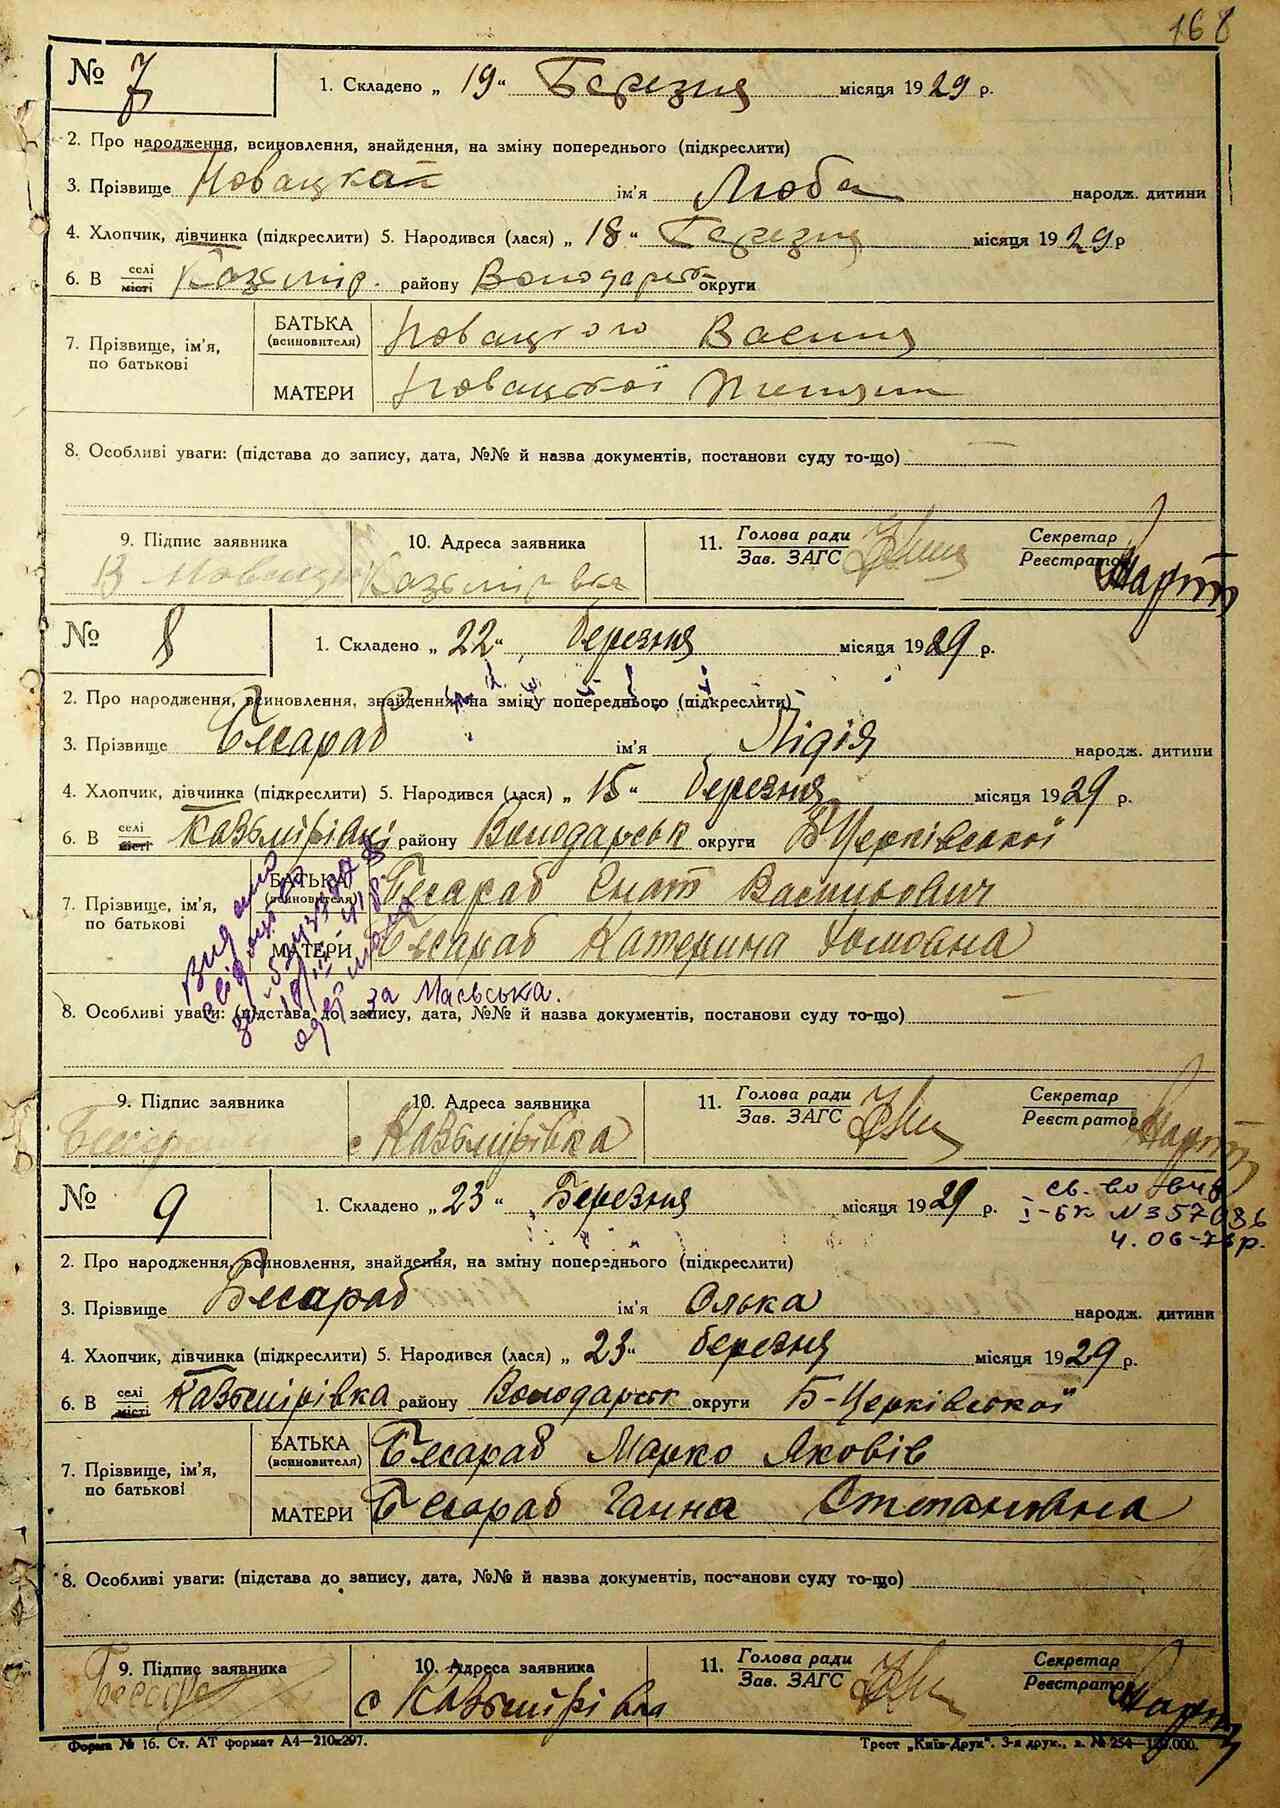 168
№ 7
1. Складено „ 19 “ Березня місяця 1929 р.
2. Про народження, всиновлення, знайдення, на зміну попереднього (підкреслити)
3. Прізвище Новацкая ім'я Люба народж. дитини
4. Хлопчик, дівчинка (підкреслити) 5. Народився (лася) „ 18 “ Березня місяця 1929 р
6. В селі/місті Казімір. району Володарськ округи
7. Прізвище, ім'я, по батькові
БАТЬКА (всиновителя) Новацкого Василя
МАТЕРИ Новацької
8. Особливі уваги: (підстава до запису, дата, №№ й назва документів, постанови суду то-що)
9. Підпис заявника 10. Адреса заявника 11. Голова ради / Зав. ЗАГС Секретар / Реєстратор
В Новацк Казімірівка
№ 8
1. Складено „ 22 “ березня місяця 1929 р.
2. Про народження, всиновлення, знайдення, на зміну попереднього (підкреслити)
3. Прізвище Бесараб ім'я Лідія народж. дитини
4. Хлопчик, дівчинка (підкреслити) 5. Народився (лася) „ 15 “ березня місяця 1929 р.
6. В селі/місті Казьмірівкі району Володарськ округи Б-Церківської
7. Прізвище, ім'я, по батькові
БАТЬКА (всиновителя) Бесараб Гнат Васильович
МАТЕРИ Бесараб Катерина Хомовна
за Маєвська.
8. Особливі уваги: (підстава до запису, дата, №№ й назва документів, постанови суду то-що)
9. Підпис заявника 10. Адреса заявника 11. Голова ради / Зав. ЗАГС Секретар / Реєстратор
Бесараб с Казьмірівка
№ 9
1. Складено „ 23 “ Березня місяця 1929 р.
св. во
I-БК № 357036
4. 06-73р.
2. Про народження, всиновлення, знайдення, на зміну попереднього (підкреслити)
3. Прізвище Бесараб ім'я Олька народж. дитини
4. Хлопчик, дівчинка (підкреслити) 5. Народився (лася) „ 23 “ березня місяця 1929 р.
6. В селі/місті Казьмірівка району Володарськ округи Б-Церківської
7. Прізвище, ім'я, по батькові
БАТЬКА (всиновителя) Бесараб Марко Яковів
МАТЕРИ Бесараб Ганна Степановна
8. Особливі уваги: (підстава до запису, дата, №№ й назва документів, постанови суду то-що)
9. Підпис заявника 10. Адреса заявника 11. Голова ради / Зав. ЗАГС Секретар / Реєстратор
Бесараб с Казьмірівка
Форма № 16. Ст. АТ формат А4—210x297. Трест „Київ-Друк“. 3-я друк., з. № 254